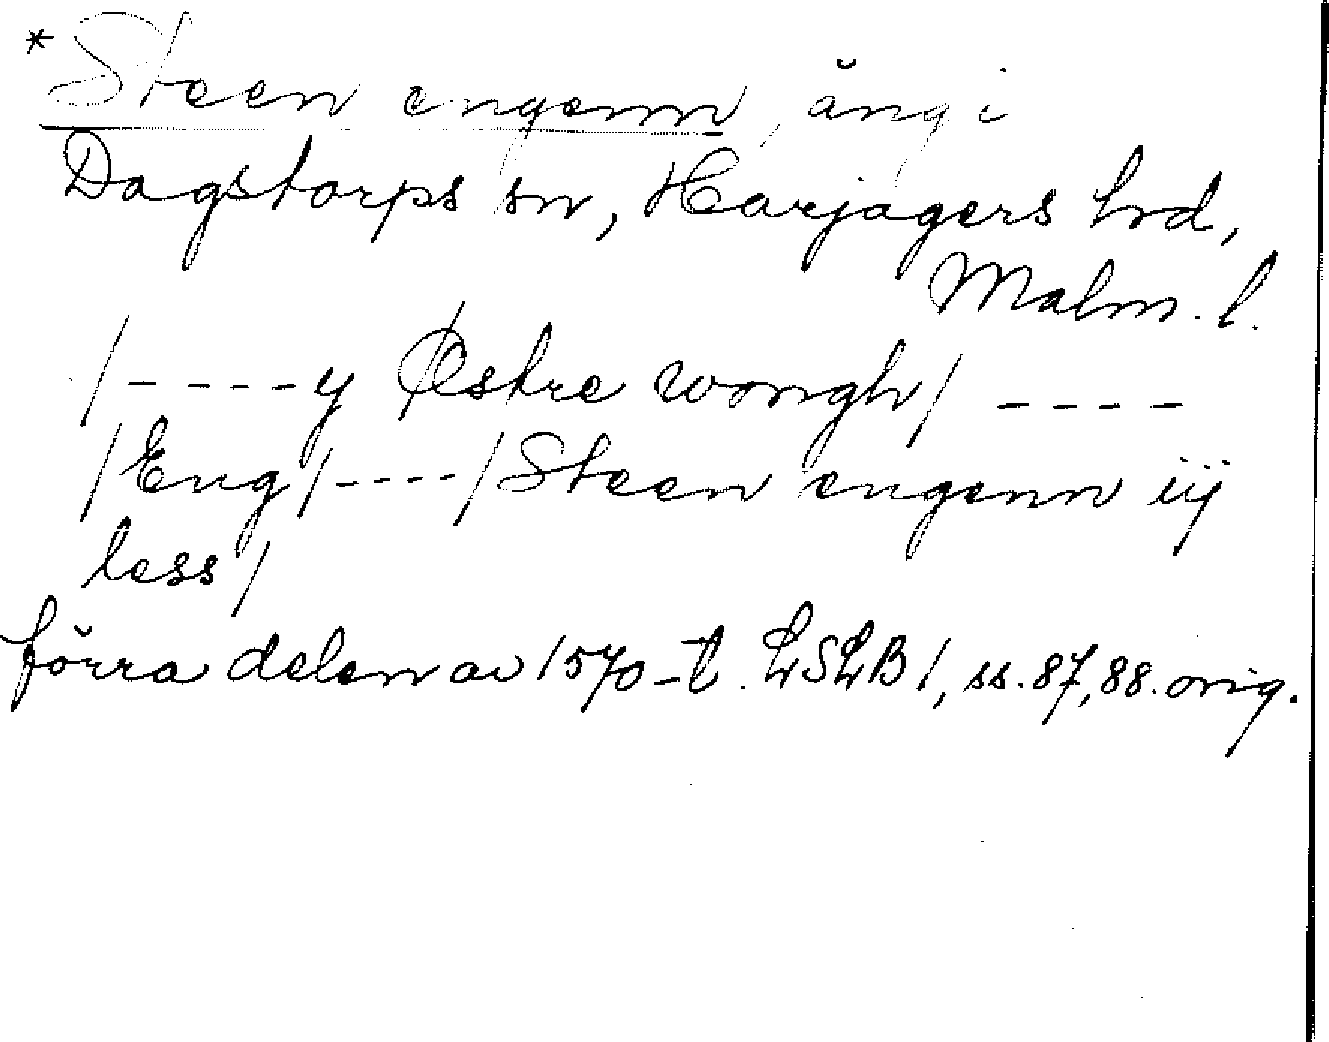 *Steen engenn, äng i
Dagstorps sn, Harjagers hrd,
Malm. l.
/----y Østre wongh/ ----
/Eng/----/Steen engenn iij
less/
förra delen av 1570-t. LSLB 1, ss. 87, 88. orig.